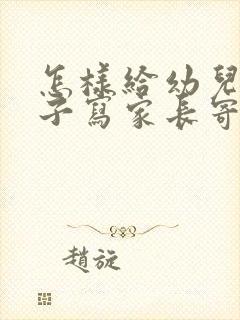 怎樣給幼兒
子寫家長寄
趙旋